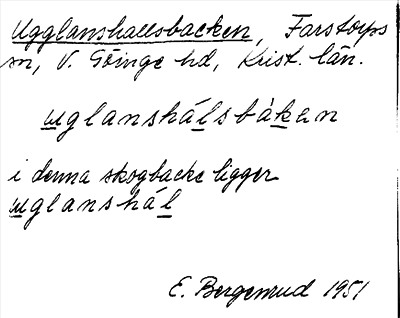 Ugglanshallsbacken, Farstorps
sn, V. Göinge hd, Krist. län.
uglanshálsbàkan
i denna skogbacke ligger
uglanshál
E. Bergemud 1951